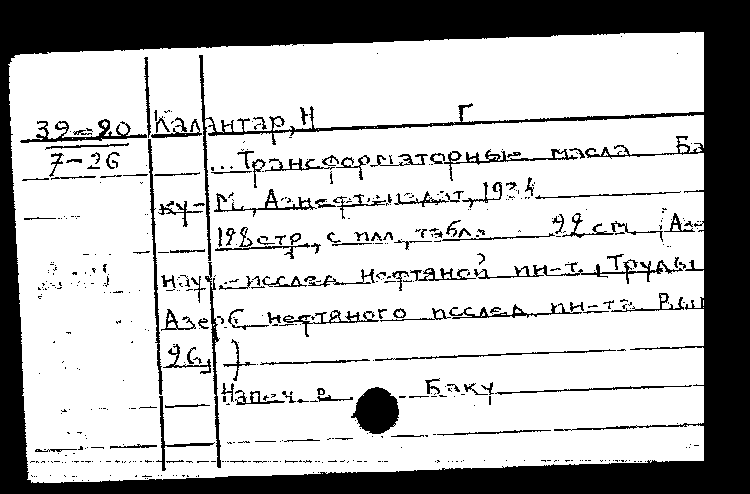 39-20 Калантар, Н Г
7-26 ...Трансформаторные масла Ба
ку- М., Азнефтеиздат, 1934.
128 стр., с илл., табл. 22 см. (Азе
науч.-исслед нефтяной ин-т. Труды
Азерб. нефтяного исслед ин-та Вып
26, )
Напеч. в Баку